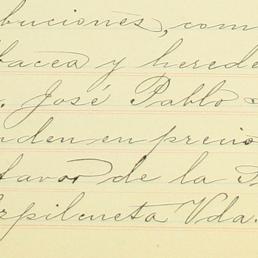 buciones, com
bacea y herede
José Pablo
nden en precio
tavos de la
Arpilcueta Vda.